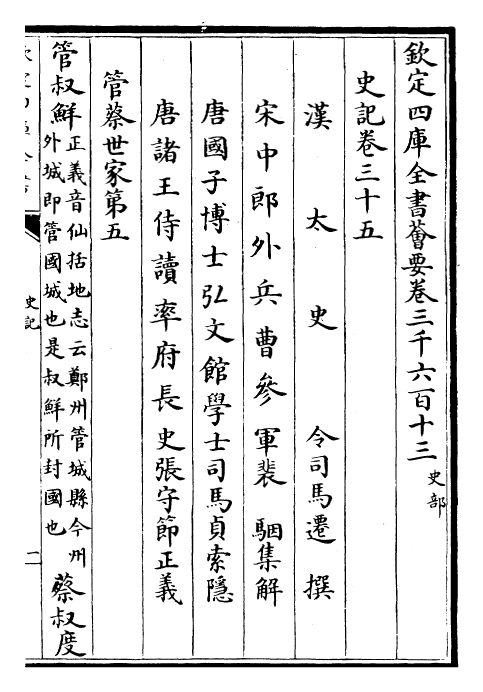 欽定四庫全書薈要卷三千六百十三 史部
史記卷三十五
漢太史令司馬遷撰
宋中郎外兵曹參軍裴駰集解
唐國子博士弘文館學士司馬貞索隱
唐諸王侍讀率府長史張守節正義
管蔡世家第五
管叔鮮 正義音仙括地志云鄭州管城縣今州
外城即管國城也是叔鮮所封國也 蔡叔度
史記